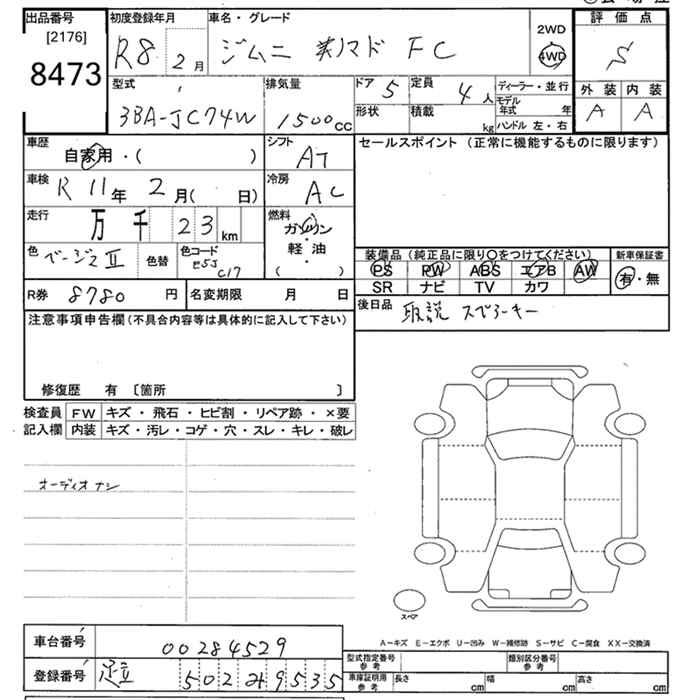 出品番号
[2176]
8473
初度登録年月
R8 2月
車名・グレード
ジムニー ノマド FC
2WD
4WD
評価点
S
外装 内装
A A
型式
3BA-JC74W
排気量
1500cc
ドア 5
形状
定員 4人
積載 kg
ディーラー・並行
モデル年式 年
ハンドル 左・右
車歴
自家用・( )
シフト
AT
セールスポイント (正常に機能するものに限ります)
車検 R11年 2月( 日)
冷房
AC
走行 万 千 23 km
燃料
ガソリン
軽・油
( )
色 ベージュII
色替
色コード
C17
装備品(純正品に限り○をつけてください)
PS PW ABS エアB AW
SR ナビ TV カワ
新車保証書
有・無
R券 8780円
名変期限 月 日
後日品 取説 スペアーキー
注意事項申告欄(不具合内容等は具体的に記入して下さい)
修復歴 有 〔箇所 〕
検査員 FW キズ・飛石・ヒビ割・リペア跡・×要
記入欄 内装 キズ・汚レ・コゲ・穴・スレ・キレ・破レ
オーディオナシ
スペア
A−キズ E−エクボ U−凹み W−補修跡 S−サビ C−腐食 XX−交換済
車台番号 00284529
登録番号 足立 502 す 9535
型式指定番号 参考
類別区分番号 参考
車庫証明用 参考
長さ cm
幅 cm
高さ cm